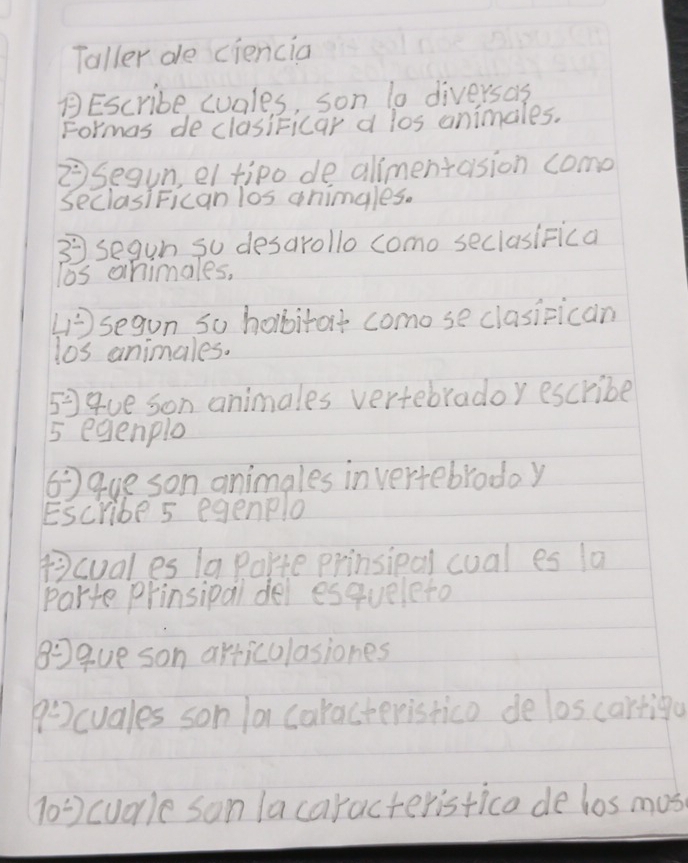 Taller de ciencia
1-) Escribe cuales, son lo diversas
Formas de clasificar a los animales.
2-) segun, el tipo de alimentasion como
seclasifican los animales.
3-) segun su desarollo como seclasifica
los animales,
4-) segun su habitat como se clasifican
los animales.
5-) que son animales vertebrado y escribe
5 egenplo
6-) que son animales invertebrado y
Escribe 5 egenplo
7-) cual es la parte prinsipal cual es la
parte prinsipal del esqueleto
8-) que son articulasiones
9-) cuales son la caracteristico de los cartigu
10-) cuale son la caracteristica de los mus